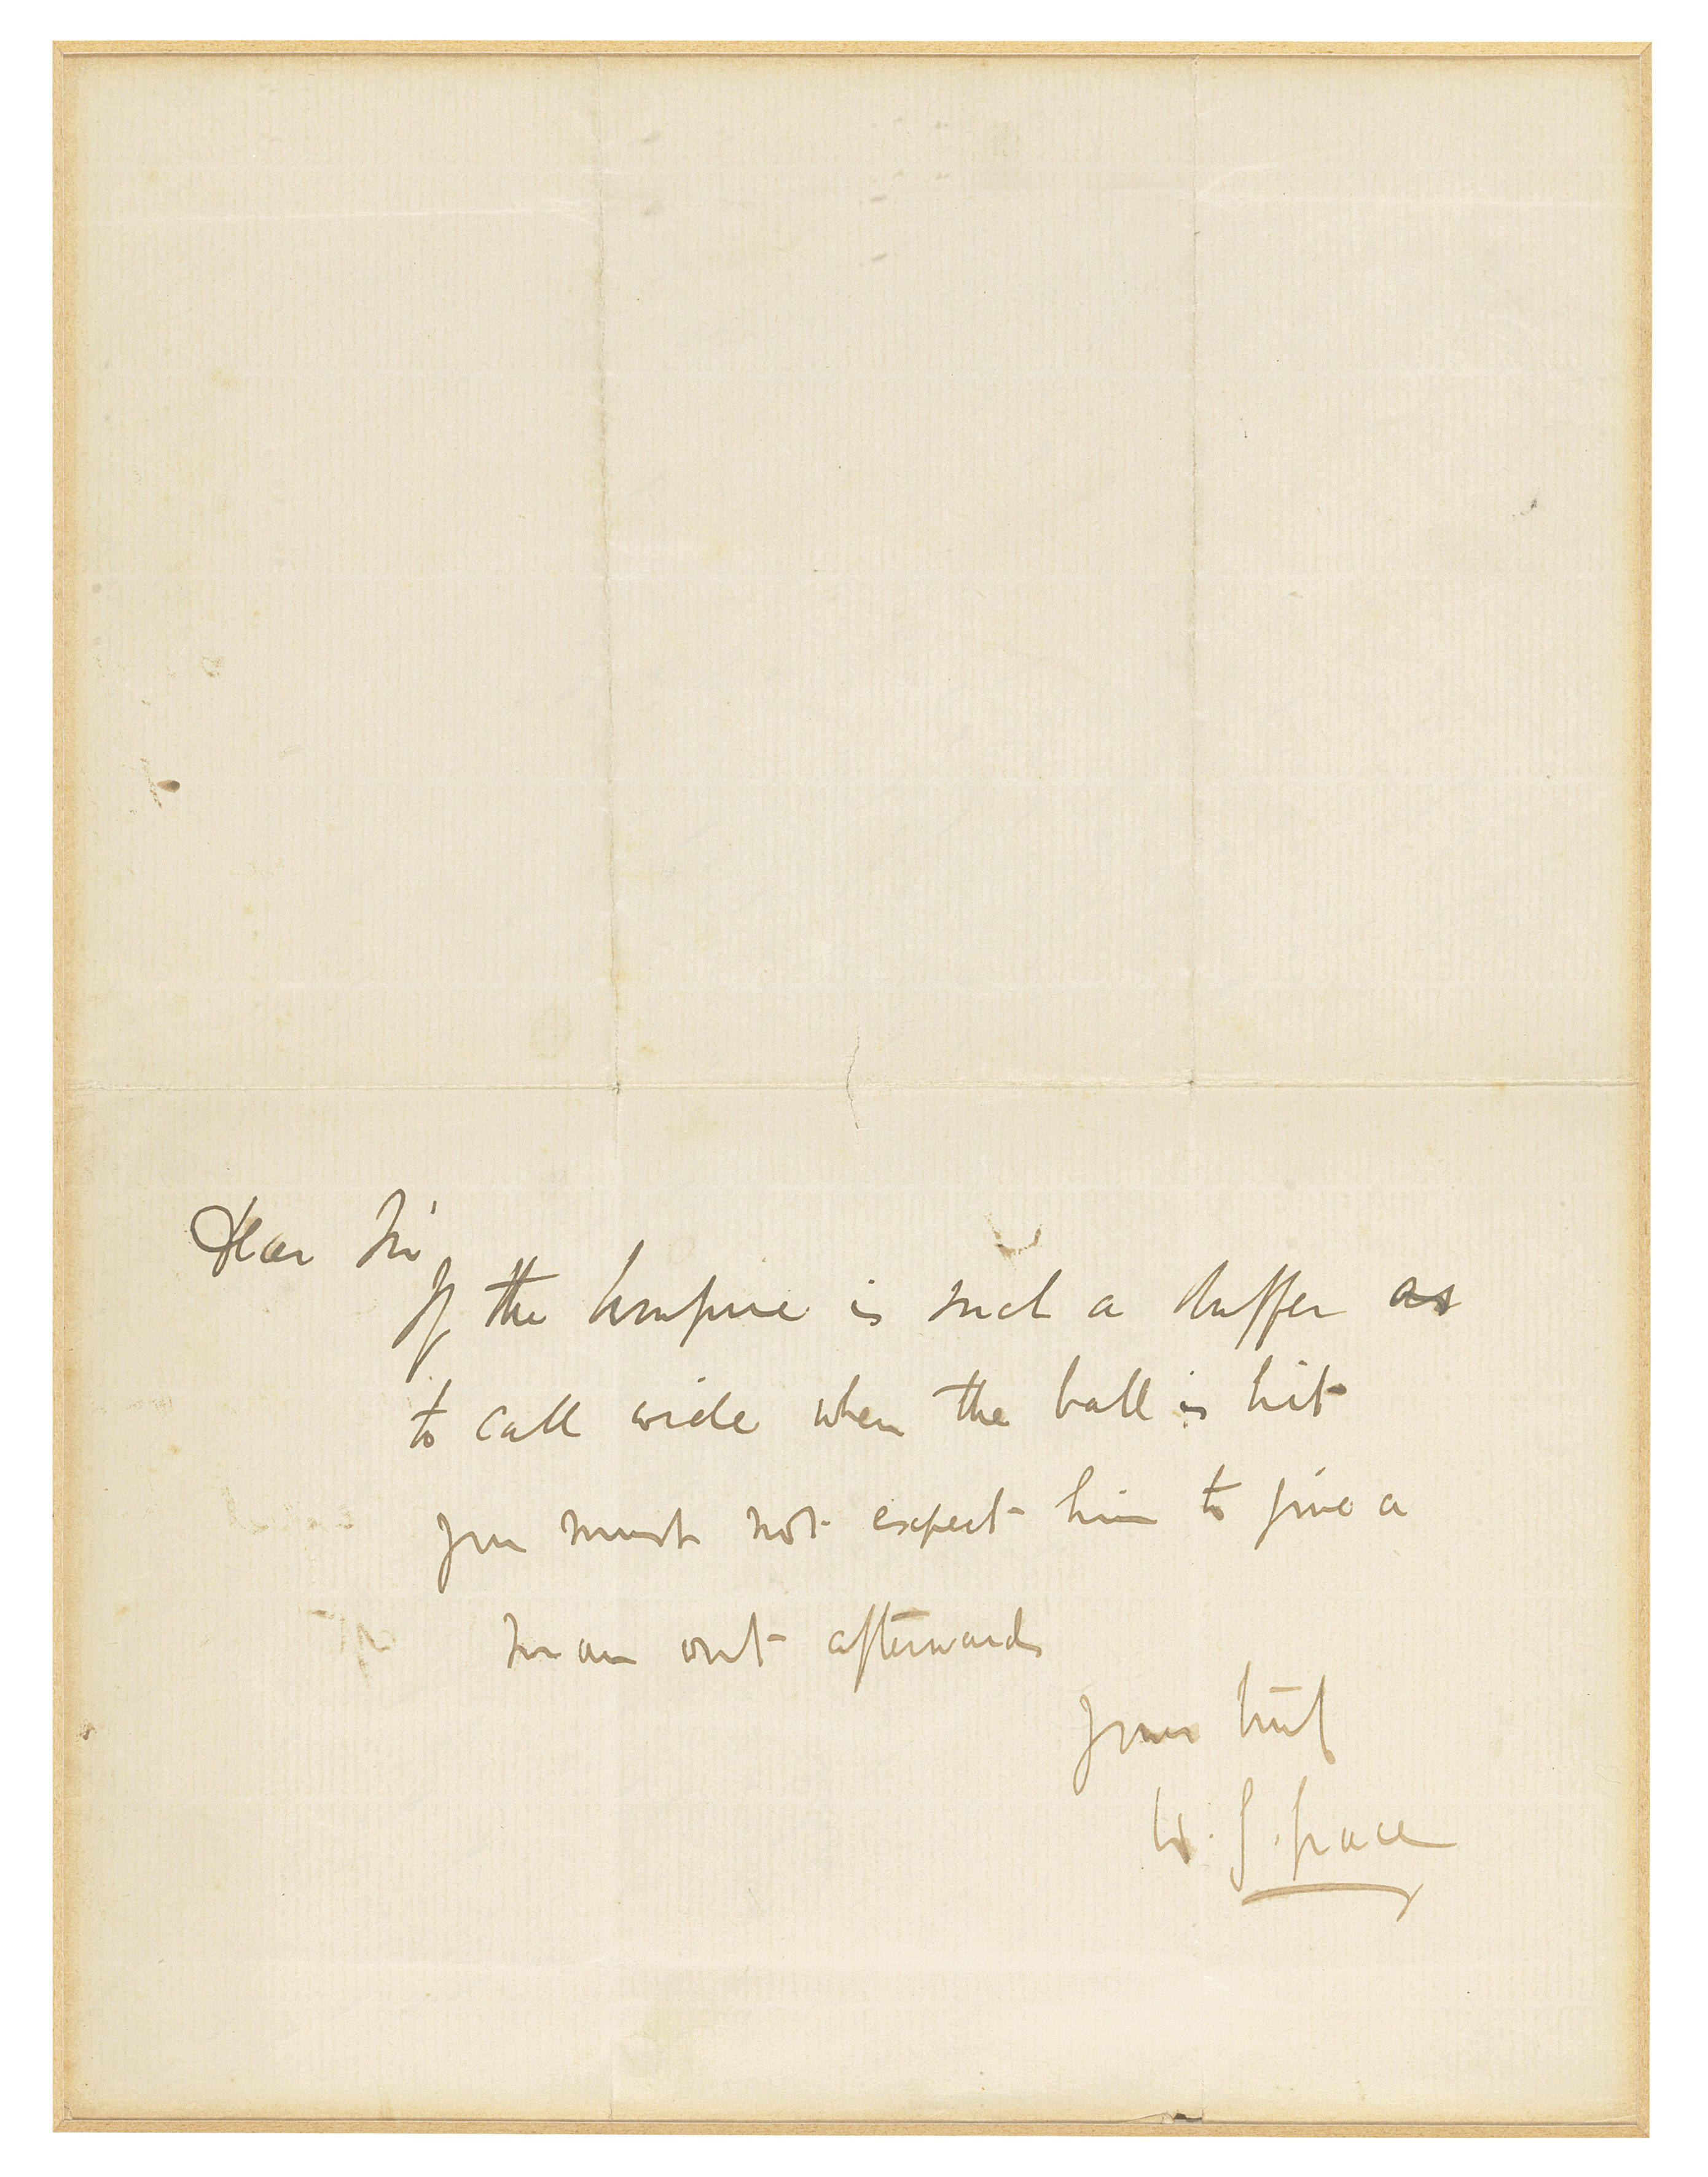 Dear Sir
If the Umpire is such a duffer as
to call wide when the ball is hit
you must not expect him to give a
man out afterwards
Yours truly
W. G. Grace